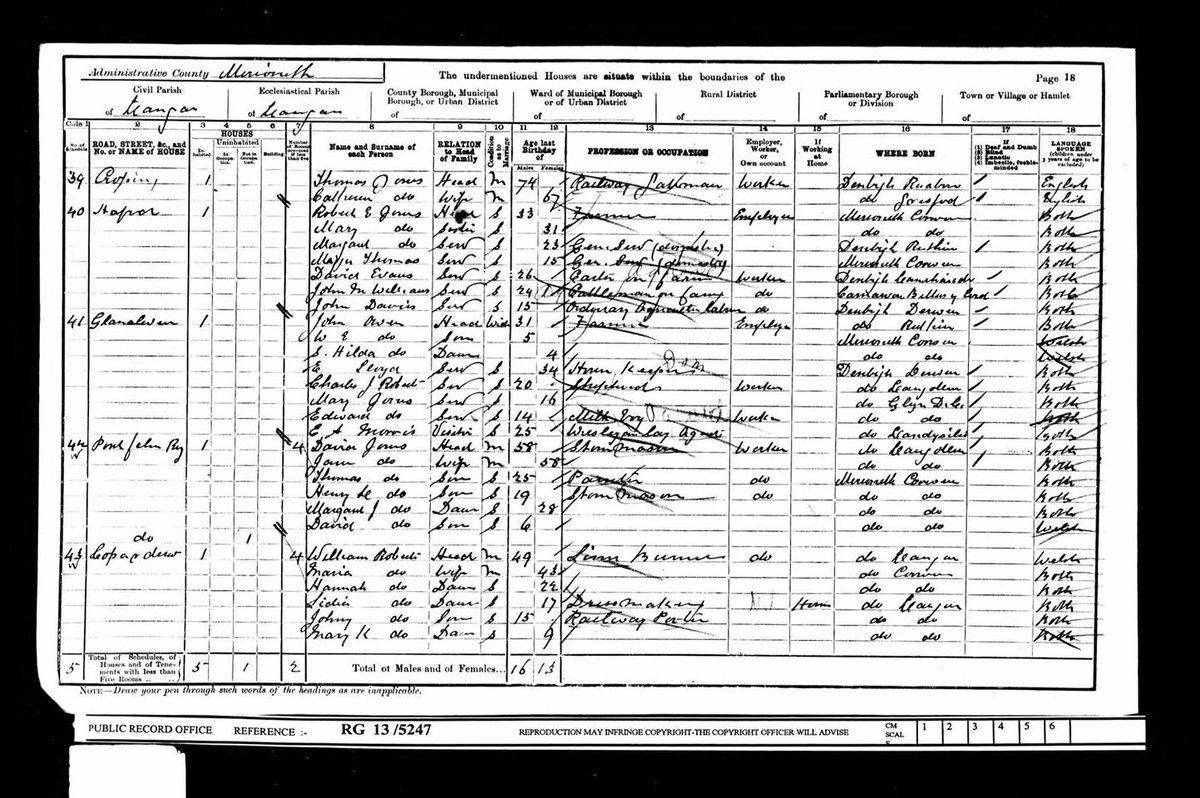 Administrative County Merioneth
The undermentioned Houses are situate within the boundaries of the
Page 18
Civil Parish
of Llangar
Ecclesiastical Parish
of Llangar
County Borough, Municipal Borough, or Urban District
of
Ward of Municipal Borough or of Urban District
of
Rural District
of
Parliamentary Borough or Division
of
Town or Village or Hamlet
of
Cols 1 2 3 4 5 6 7 8 9 10 11 12 13 14 15 16 17 18
No. of Schedule
ROAD, STREET, &c., and No. or NAME of HOUSE
HOUSES
Inhabited
Uninhabited
In Occupation
Not in Occupation
Building
Number of Rooms occupied if less than five
Name and Surname of each Person
RELATION to Head of Family
Condition as to Marriage
Age last Birthday of
Males Females
PROFESSION OR OCCUPATION
Employer, Worker, or Own account
If Working at Home
WHERE BORN
If
(1) Deaf and Dumb
(2) Blind
(3) Lunatic
(4) Imbecile, feeble-minded
LANGUAGE SPOKEN
(children under 3 years of age to be excluded)
39 1 Thomas J Jones Head M 74 Railway Worker Denbigh Ruabon English
do Wife M 67 do Gresford English
40 Hafod 1 Robert E Jones Head S 33 Farmer Employer Merioneth Corwen Both
Mary do Sister S 31 do do Both
Margaret do Serv S 23 Gen. Serv (domestic) Denbigh Ruthin Both
Thomas Serv S 15 Gen. Serv (domestic) Merioneth Corwen Both
David Evans Serv S 26 Carter on farm Worker Denbigh Both
John M Williams Serv S 24 Cattleman on farm do Carnarvon Both
John Davies Serv S 15 Ordinary Agricultural labour do Denbigh Derwen Both
41 Glanalwen 1 John Owen Head Wid 31 Farmer Employer do Ruthin Both
W E do Son 5 Merioneth Corwen Welsh
S. Hilda do Daur 4 do do Welsh
E Lloyd Serv S 34 House Keeper Dom Denbigh Derwen Both
Charles J Roberts Serv S 20 Shepherd Worker do Llangollen Both
Mary Jones Serv 16 do Both
Edward do Serv S 14 Milk Boy Worker do do Both
E A Morris Visitor S 25 Wesleyan Lay Agent do Both
42 1 4 David Jones Head M 58 Stone Mason Worker do Llangollen Both
Jane do Wife M 58 do do Both
Thomas do Son S 25 Painter do Merioneth Corwen Both
Henry Ll do Son S 19 Stone Mason do do do Both
Margaret J do Daur S 28 do do Both
David do Son S 6 do do Welsh
do 1
43 1 4 William Roberts Head M 49 do do Llangar Welsh
Maria do Wife M 43 do Corwen Both
Hannah do Daur S 22 do do Both
Lidia do Daur S 17 Dress making Home do Llangar Both
Johny do Son S 15 Railway Porter do do Both
Mary K do Daur S 9 do do Both
5 Total of Schedules, of Houses and of Tenements with less than Five Rooms 5 1 2 Total of Males and of Females... 16 13
NOTE—Draw your pen through such words of the headings as are inapplicable.
PUBLIC RECORD OFFICE REFERENCE :- RG 13/5247 REPRODUCTION MAY INFRINGE COPYRIGHT-THE COPYRIGHT OFFICER WILL ADVISE CM SCALE 1 2 3 4 5 6